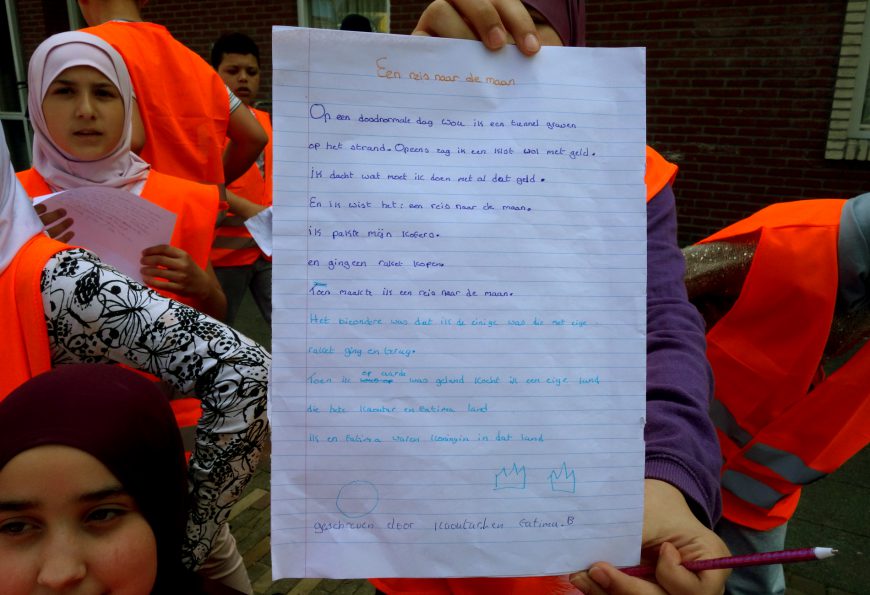 Een reis naar de maan
Op een doodnormale dag wou ik een tunnel graven
op het strand. Opeens zag ik een klot wol met geld.
ik dacht wat moet ik doen met al dat geld.
En ik wist het: een reis naar de maan.
ik pakte mijn kofers.
en ging een raket kopen.
Toen maakte ik een reis naar de maan.
Het bizondere was dat ik de einige was die met eige
raket ging en terug.
Toen ik op aarde was geland kocht ik een eige land
die hete kaoutar en Fatima land
ik en Fatima waren koningin in dat land
geschreven door kaoutar en Fatima.B